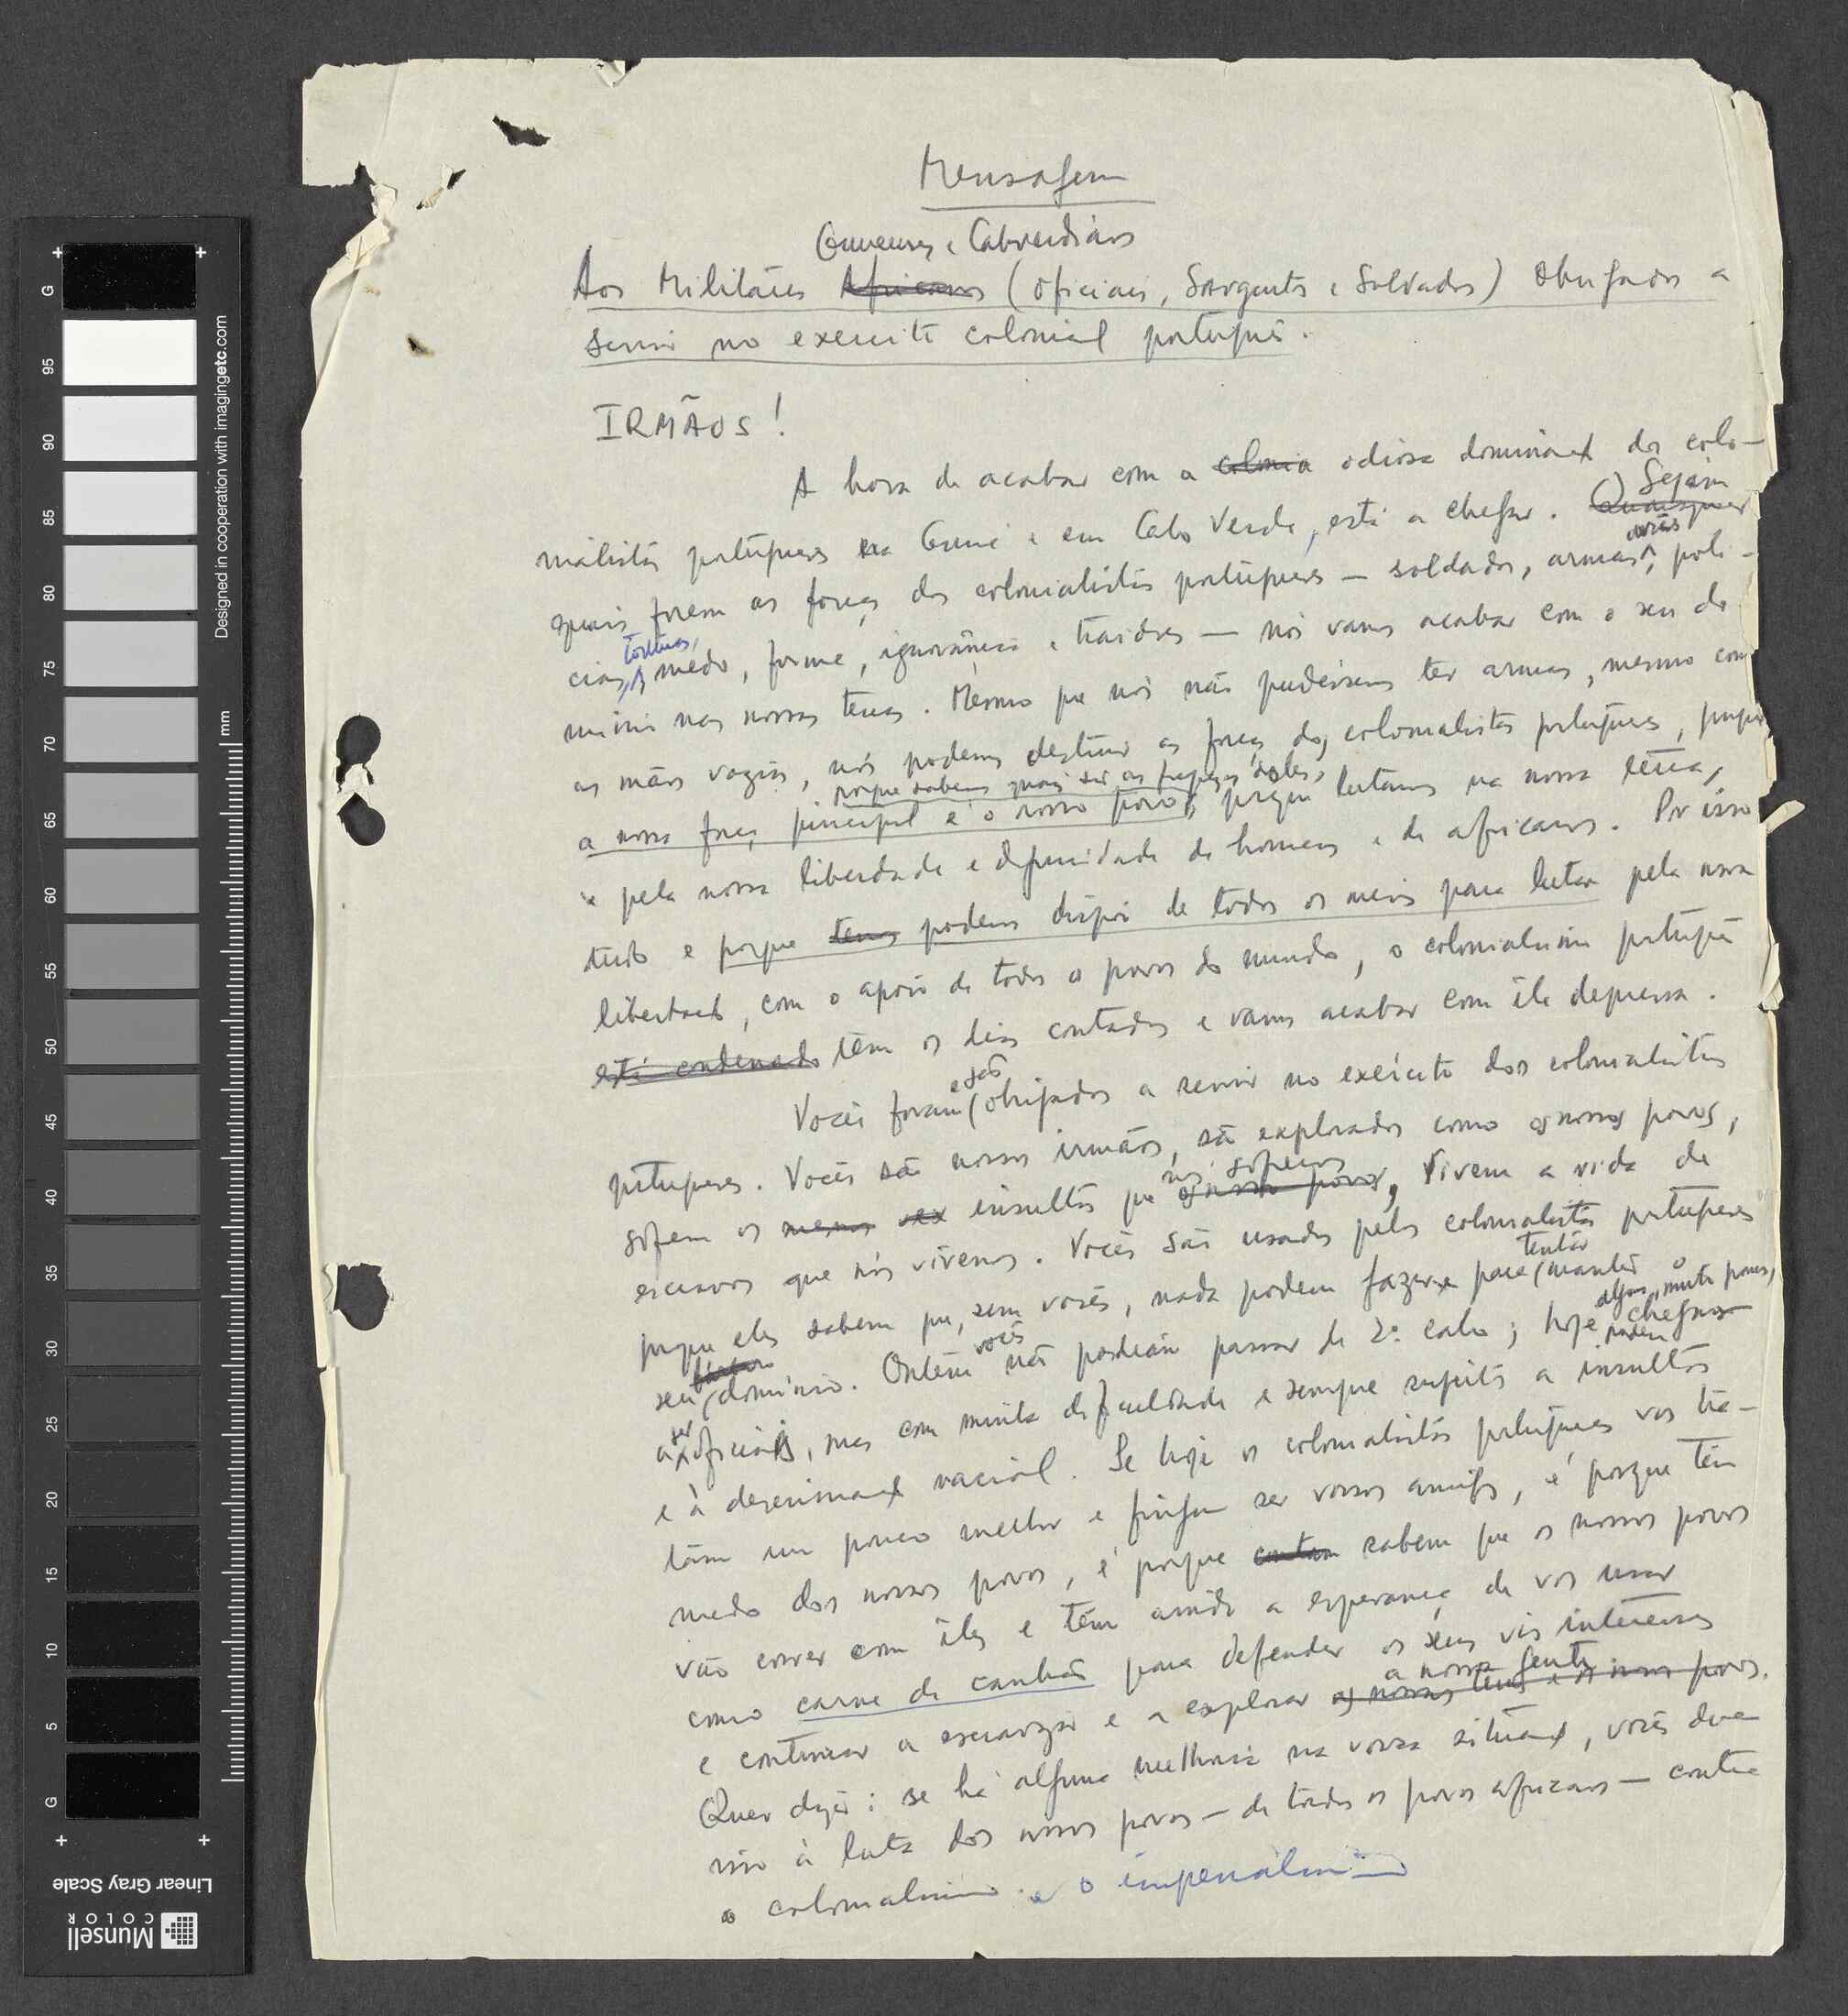 Mensagem
Guineenses e Caboverdianos
Aos Militares Africanos (Oficiais, Sargentos e Soldados) Obrigados a
servir no exercito colonial português.
IRMÃOS!
A hora de acabar com a colonia odiosa dominação dos colo-
nialistas portugueses na Guiné e em Cabo Verde, está a chegar. Quaisquer Sejam
quais forem as forças dos colonialistas portugueses — soldados, armas, aviões, polí-
cias, torturas, medo, fome, ignorância e traidores — nós vamos acabar com o seu do
mínio nas nossas terras. Mesmo que nós não pudéssemos ter armas, mesmo com
as mãos vazias, nós podemos destruir as forças dos colonialistas portugueses, porque
porque sabemos quais são as fraquezas deles,
a nossa força principal é o nosso povo, porque lutamos na nossa terra,
e pela nossa liberdade e dignidade de homens e de africanos. Por isso
tudo e porque temos podemos dispor de todos os meios para lutar pela nossa
libertação, com o apoio de todos os povos do mundo, o colonialismo português
está condenado têm os dias contados e vamos acabar com êle depressa.
Vocês foram e são obrigados a servir no exército dos colonialistas
portugueses. Vocês são nossos irmãos, são explorados como os nossos povos,
sofrem os mesmos vex insultos que nós sofremos os nossos povos, Vivem a vida de
escravos que nós vivemos. Vocês são usados pelos colonialistas portugueses
porque eles sabem que, sem vocês, nada podem fazer para tentar manter o
seu domínio. Ontem vocês não podiam passar de 2º cabo; hoje alguns, muito poucos, chegam podem
a ser oficiais, mas com muita dificuldade e sempre sujeitos a insultos
e à descriminação racial. Se hoje os colonialistas portugueses vos tra-
tam um pouco melhor e fingem ser vossos amigos, é porque têm
medo dos nossos povos, é porque contam sabem que os nossos povos
vão correr com êles e têm ainda a esperança de vos usar
como carne de canhão para defender os seus vis interesses
e continuar a escravizar e a explorar a nossa gente. as nossas terras e os nossos povos.
Quer dizer: se há alguma melhoria na vossa situação, vocês devem
isso à luta dos nossos povos — de todos os povos africanos — contra
o colonialismo e o imperialismo
Designed in cooperation with imagingetc.com
mm
G
95
90
85
80
75
70
65
60
55
50
45
40
35
30
25
20
15
10
5
G
Linear Gray Scale
Munsell
COLOR